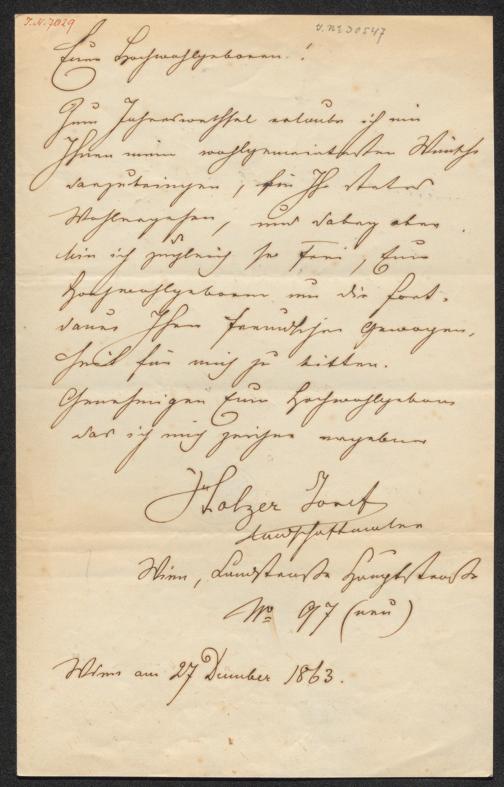 I.N. 7029
I.N. 30547
Euer Hochwohlgeboren!
Zum Jahreswechsel erlaube ich mir
Ihnen meine wohlgemeintesten Wünsche
darzubringen, für Ihr stetes
Wohlergehen, und dabey aber
bin ich zugleich so Frei, Euer
Hochwohlgeboren um die Fort-
dauer Ihrer freundlichen Gewogen-
heit für mich zu bitten.
Genehmigen Euer Hochwohlgeboren
das ich mich zeichne ergebener
Holzer Josef
Landschaftmaler
Wien, Landstrasse Hauptstrasse
No 97 (neu)
Wien am 27 Dezember 1863.